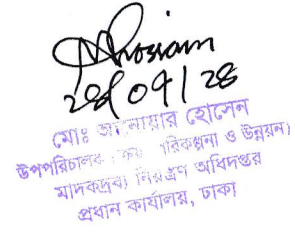 Mhossain
28/09/28
মোঃ আনোয়ার হোসেন
উপপরিচালক পরিকল্পনা ও উন্নয়ন)
মাদকদ্রব্য নিয়ন্ত্রণ অধিদপ্তর
প্রধান কার্যালয়, ঢাকা